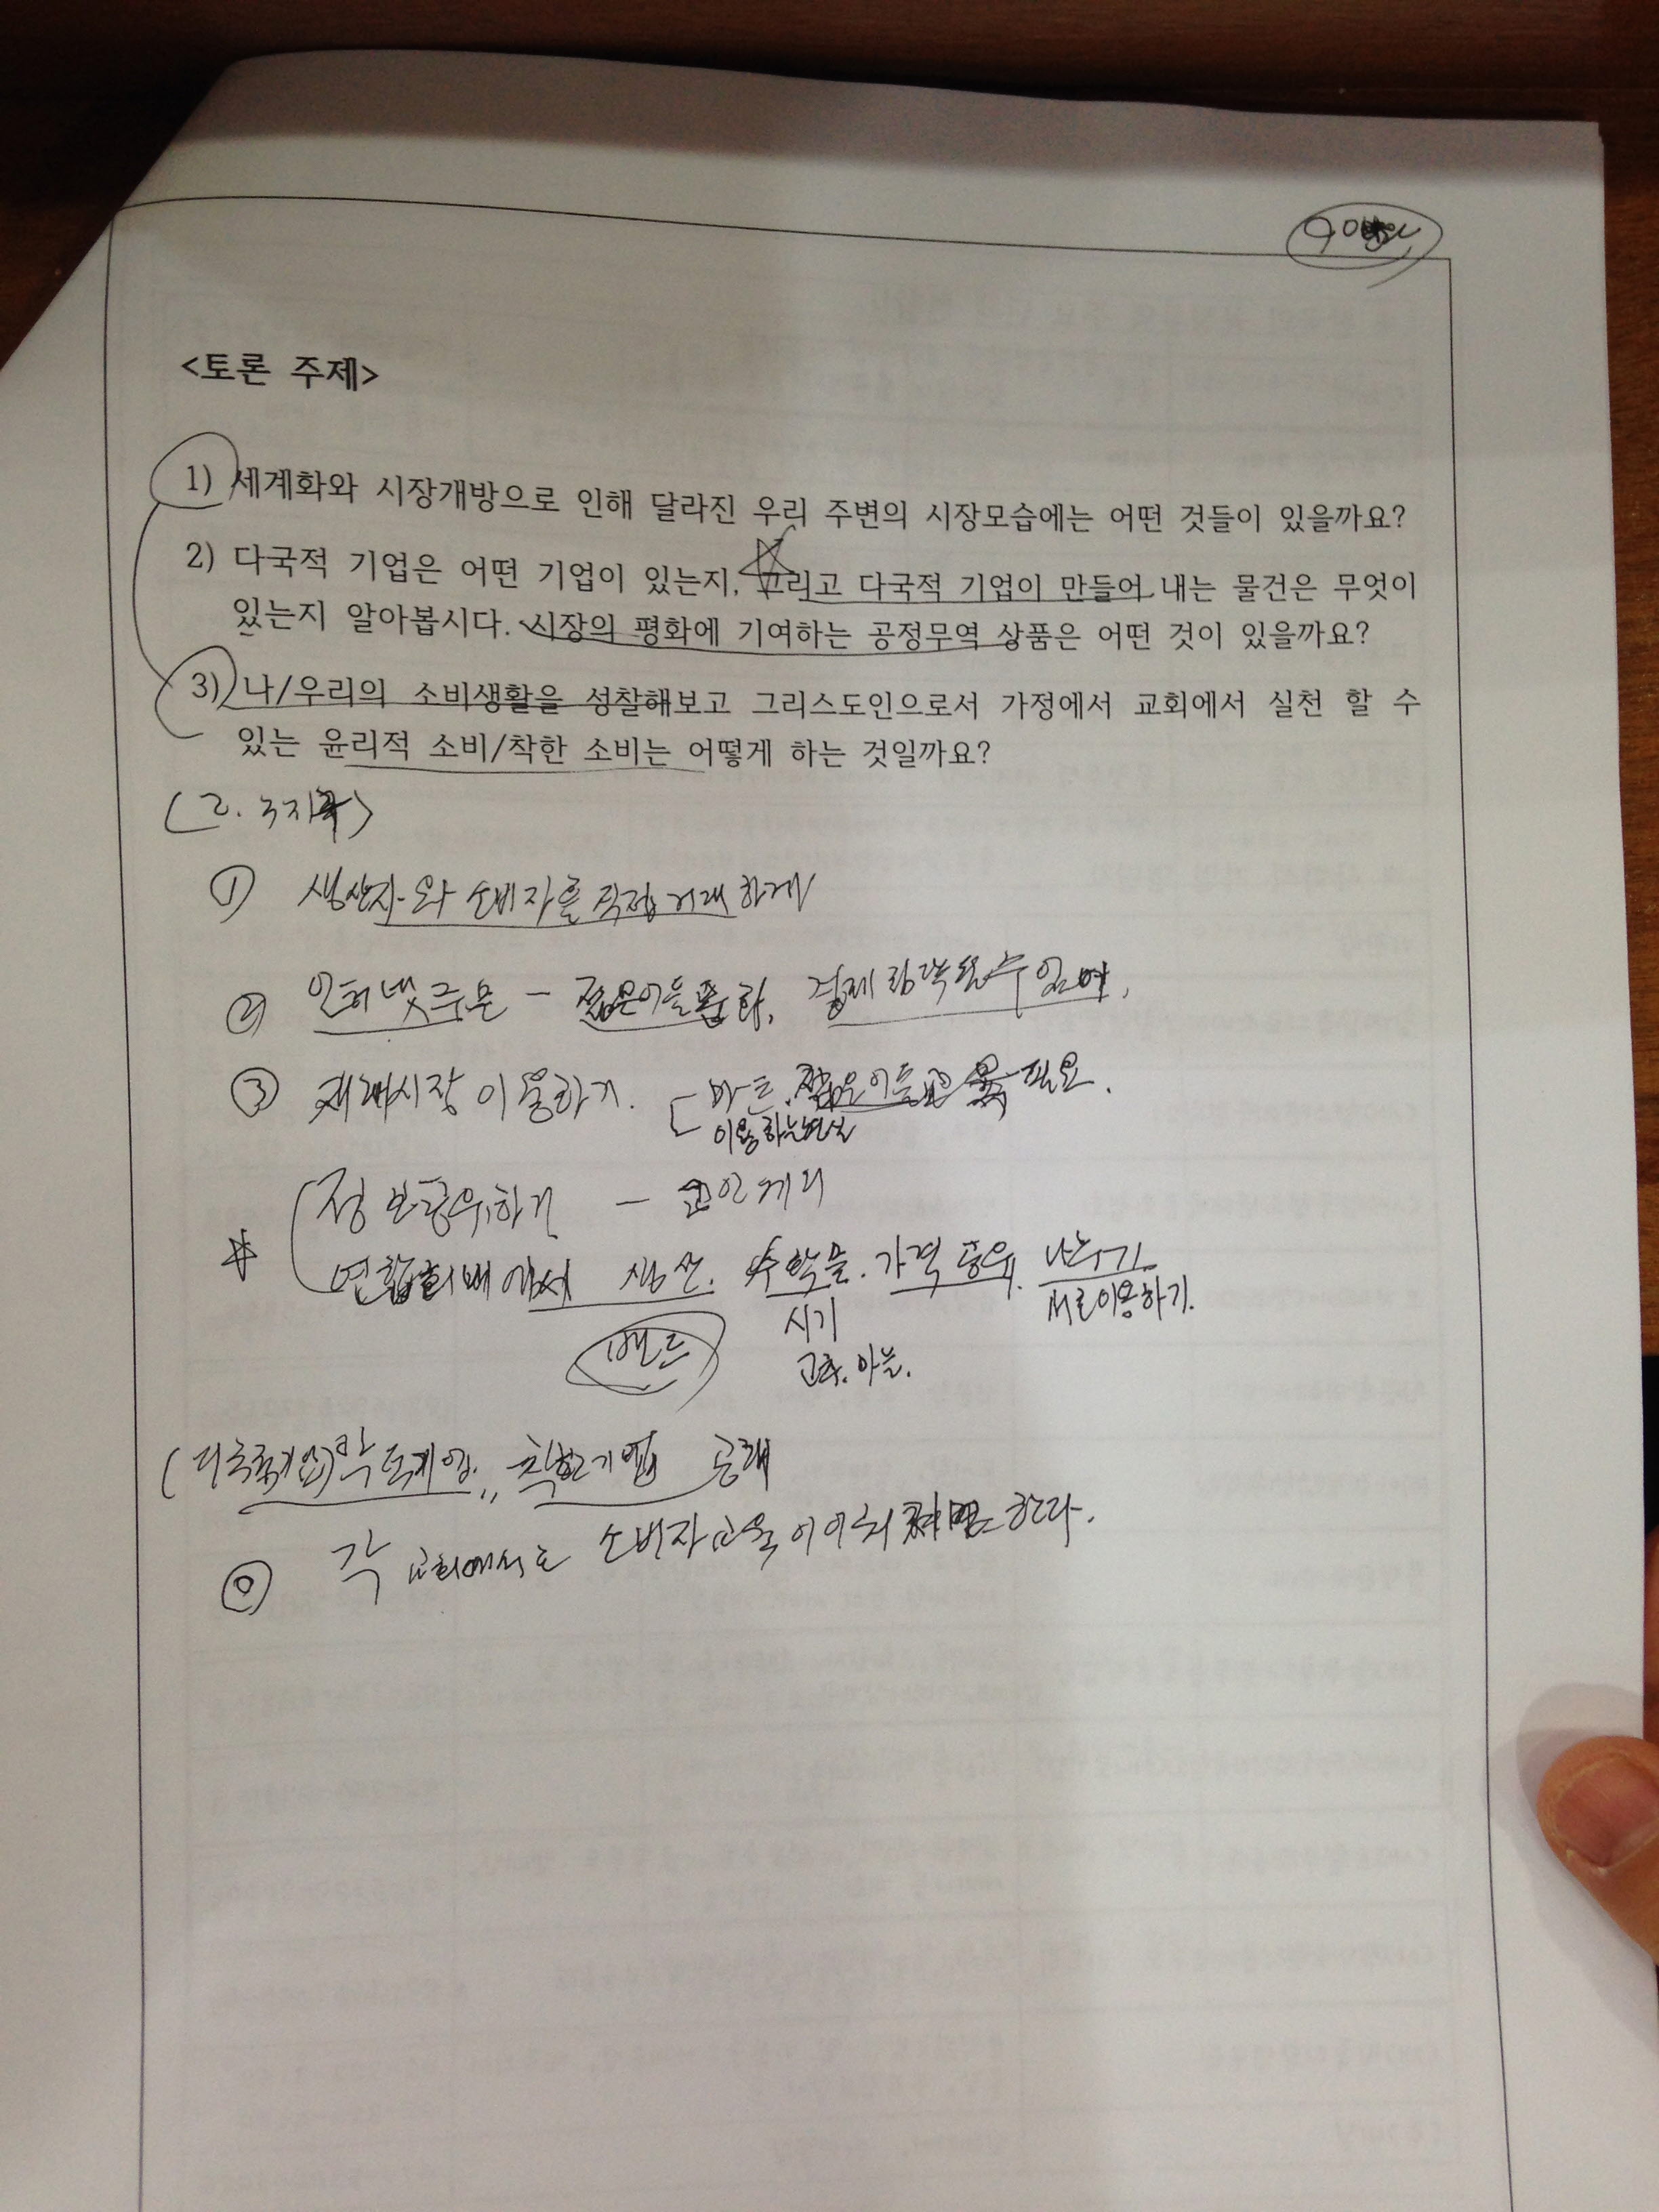 <토론 주제>
1) 세계화와 시장개방으로 인해 달라진 우리 주변의 시장모습에는 어떤 것들이 있을까요?
2) 다국적 기업은 어떤 기업이 있는지, 그리고 다국적 기업이 만들어 내는 물건은 무엇이
있는지 알아봅시다. 시장의 평화에 기여하는 공정무역 상품은 어떤 것이 있을까요?
3) 나/우리의 소비생활을 성찰해보고 그리스도인으로서 가정에서 교회에서 실천 할 수
있는 윤리적 소비/착한 소비는 어떻게 하는 것일까요?
① 생산자와 소비자를 직접거래하게
② 인터넷주문 -
③ 재래시장 이용하기. 마트. 필요.
이용하는현실
정보공유하기 -
연합회비에서 생산. 수확물. 가격 공유. 나누기
시기 서로이용하기.
밴드 고추. 마늘.
착한기업
각 교회에서도 소비자교육이 한다.